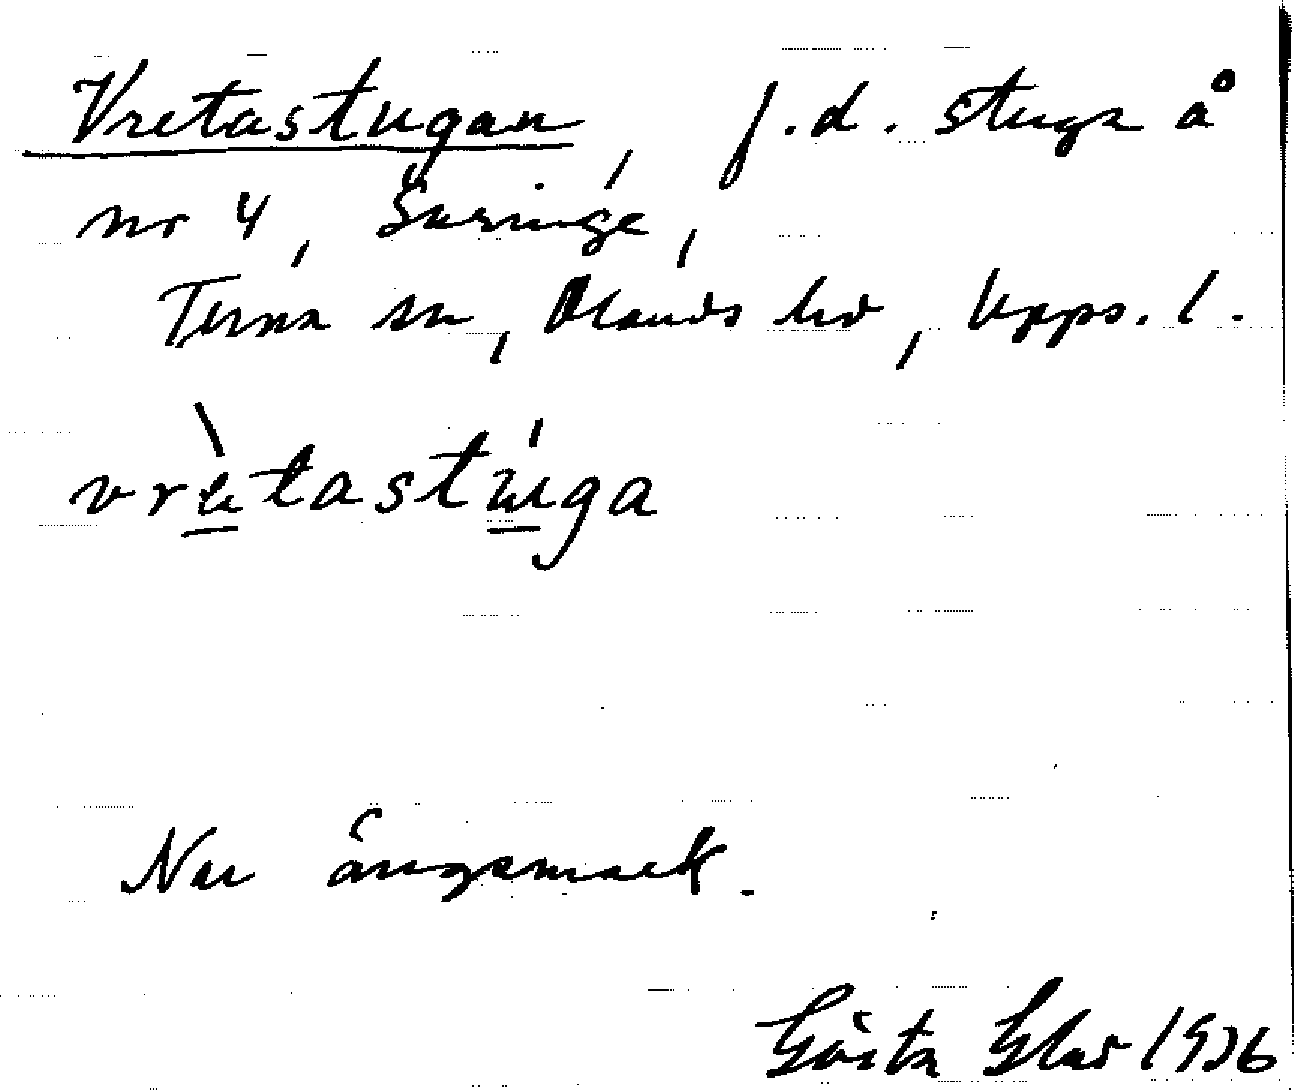 Vretastugan, f.d. stuga å
nr 4, Sneringe,
Tierps sn, Olands hd, Upps. l.
vrètastúga
Nu ängsmark.
Gösta Glad 1936